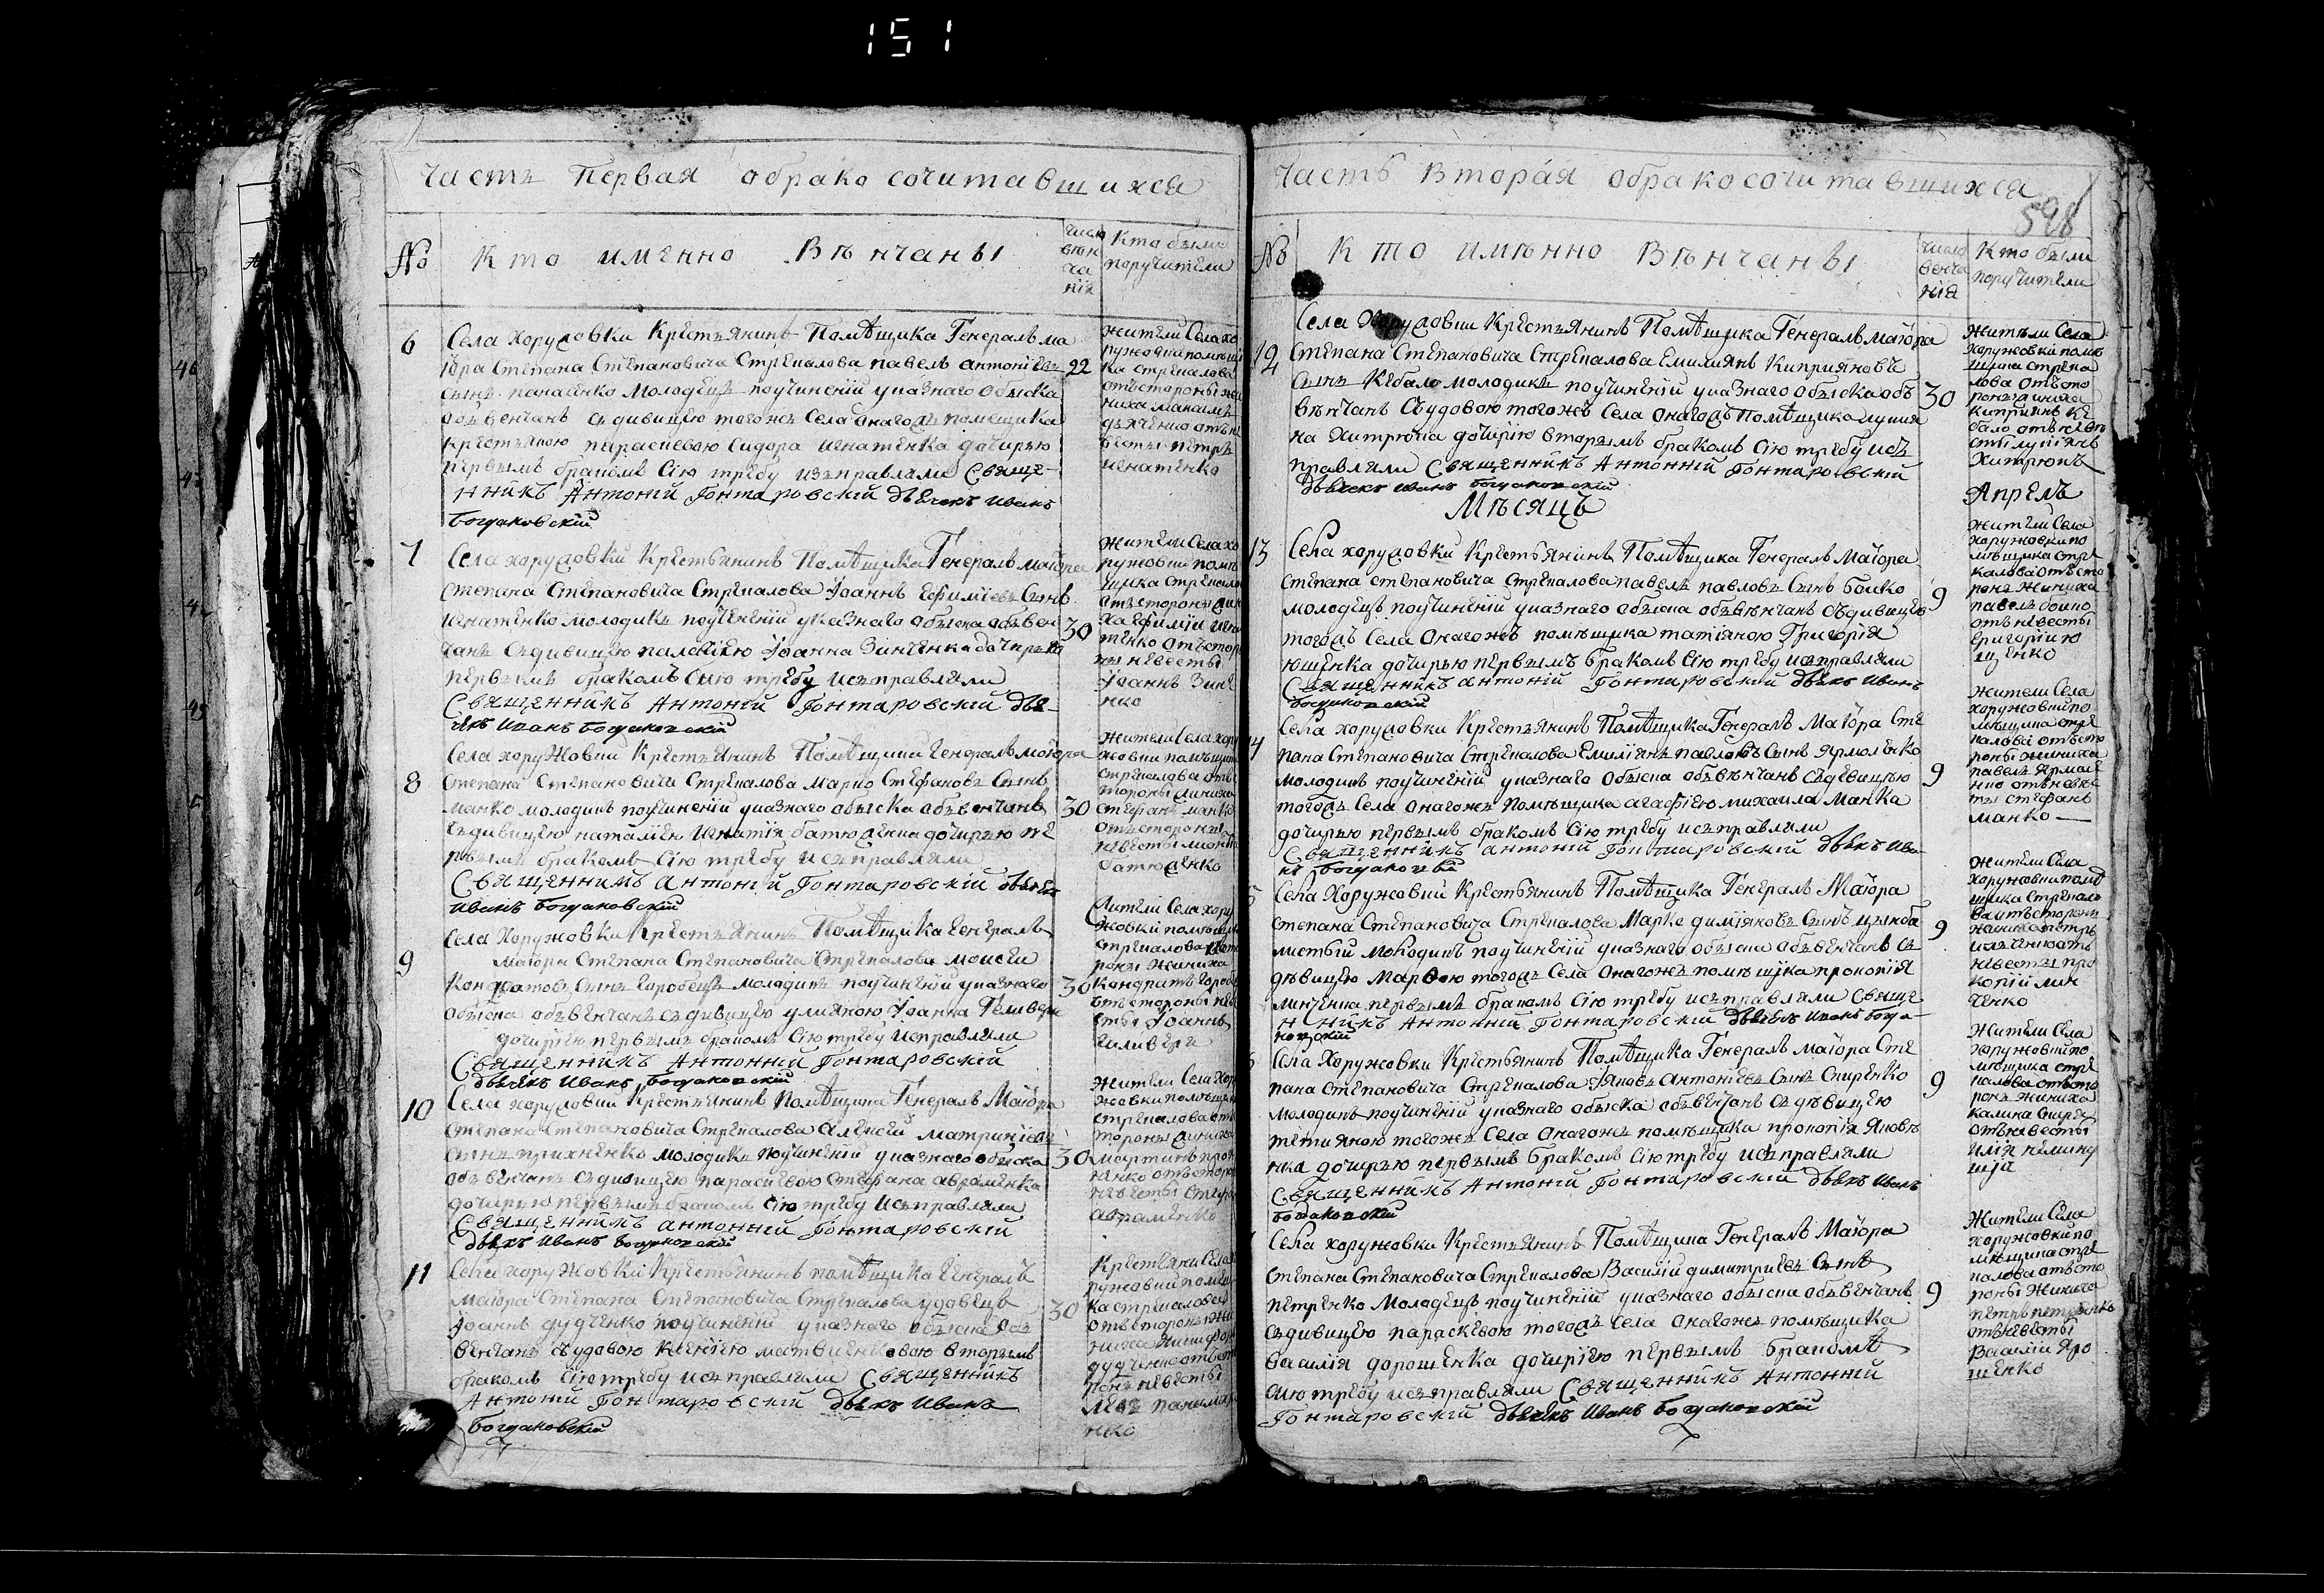 151
Часть Первая обрако сочитавшихся
№ Кто именно Вѣнчаны
число вѣн ча нія
Кто были поручители
6
Села хоружовки Крестьянинъ Помѣщика Генералъ ма
іора Степана Степановича Стрекалова павелъ антоніевъ 22
сынъ молодецъ поучиненій указнаго обыска
обвенчанъ здивицею тогожъ Села онагожъ помещика
крестьяною параскевою Сидора игнатенка дочерью
первымъ бракомъ Сію требу изправляли Свяще-
нникъ Антоній Гонтаровскій дьячекъ Иванъ
Богдановскій
Жители Села хо
ружовки помѣщи
ка стрекалова
отъ стороны же
ниха
отъ не
весты петръ
игнатенко
7
Села хоружовки Крестьянинъ Помѣщика Генералъ маіора
степана Степановича Стрекалова Іоаннъ Ефиміевъ Сынъ
игнатенко молодикъ поучиненій указнаго обыска обвен 30
чанъ здивицею палагіею Іоанна Зинченка дочерью
первымъ бракомъ Сию требу исправляли
Священникъ Антоній Гонтаровскій дья-
чекъ Иванъ Богдановскій
Жители Села хо
ружовки помѣ
щика стрекало
отъ стороны жени
ха ефимій игна
тенко отъ сторо
ны невесты
Іоаннъ Зинче
нко
8
Села хоружовки Крестьянинъ Помѣщики генералъ маіора
Степана Степановича Стрекалова Марко Стефановъ Сынъ
манко молодикъ поучиненій указнаго обыска обвенчанъ 30
сдивицею наталіею Игнатія дочерью пе
рвымъ бракомъ Сію требу исправляли
Священникъ антоній Гонтаровскій дьячекъ
Иванъ Богдановскій
Жители Села хору
жовки помѣщика
стрекалова отъ с
тороны жениха
стефанъ манко
отъ стороны
невесты
9
Села Хоружовки Крестьянинъ Помѣщика генералъ
маіора Степана Степановича Стрекалова моисей
Кондратовъ сынъ горобецъ молодикъ поучиненій указнаго 30
обыска обвенчанъ сдивицею улияною Іоанна Геливери
дочерію первымъ бракомъ Сію требу исправляли
Священникъ Антонній Гонтаровскій
дьячекъ Иванъ Богдановскій
Жители Села хору
жовки помѣщика
стрекалова отъ сто
роны жениха
кондратъ горобе
отъ стороны неве
сты Іоаннъ
геливеря
10
Села хоружовки Крестьянинъ Помѣщика Генералъ Маіора
Степана Степановича Стрекалова Алексій
сынъ молодикъ поучиненій указнаго обыска 30
обвенчанъ сдивицею параскевою Стефана авраменка
дочерью первымъ бракомъ Сію требу исправляли
Священникъ антонній Гонтаровскій
дьякъ Иванъ Богдановскій
Жители Села хору
жовки помѣщика
стрекалова отъ с
тороны жениха
мартинъ
отъ сторо
невесты стефа
авраменко
11
Села хоружовки Крестьянинъ помѣщика генералъ
маіора Степана Степановича Стрекалова удовецъ
Іоаннъ дудченко поучиненій указнаго обыска об 30
венчанъ съ удовою Ксенією матвиенковою вторымъ
бракомъ Сію требу исправляли Священникъ
Антоній Гонтаровскій дьякъ Иванъ
Богдановскій
Крестьяни Села хо
ружовки помѣщи
ка стрекалова
отъ стороны же
ниха
дудченко отъ сто
роны невесты
Часть Вторая обракосочитавшихся
598
№ Кто имѣнно Вѣнчаны
число венча нія
Кто были поручители
12
Села Хоружовки Крестьянинъ Помѣщика Генералъ маіора
Степана Степановича Стрекалова Емилиянъ Киприяновъ
Сынъ Кебало молодикъ поучиненій указнаго обыска объ 30
вѣнчанъ съ удовою тогожъ Села онагожъ Помѣщика лукия
на Хитрюка дочерію вторымъ бракомъ Сію требу изъ
правляли Священникъ Антонній Гонтаровскій
дьячекъ Иванъ Богдановскій
Жители Села
Хоружовки помѣ
щика стрека
лова отъ сто
роны жениха
киприянъ ке
бало отъ неве
сты лукіянъ
Хитрюкъ
Мѣсяцъ Апрель
13
Села хоружовки Крестьянинъ Помѣщика Генералъ Маіора
Степана степановича стрекалова павелъ павловъ Сынъ Бойко
молодецъ поучиненій указнаго обыска обвѣнчанъ Съдивицею 9
тогожъ Села онагожъ помѣщика татіяною Григорія
ющенка дочерью первымъ бракомъ Сію требу исправляли
Священникъ антоній Гонтаровскій дьякъ Иванъ
Богдановскій
Жители Села
хоружовки по
мѣщика стре
калова отъ сто
роны Жениха
павелъ бойко
отъ невесты
григорій ю
щенко
14
Села хоружовки Крестьянинъ Помѣщика Генералъ Маіора Сте
пана Степановича Стрекалова Емиліянъ павловъ Сынъ Ярмоленко
молодикъ поучиненій указнаго обыска обвѣнчанъ съдевицею 9
тогожъ Села онагожъ помѣщика агафіею михаила Манка
дочерью первымъ бракомъ Сію требу исправляли
Священникъ антоній Гонтаровскій дьякъ Ива-
нъ Богдановскій
Жители Села
хоружовки по
мѣщика стре
калова отъ сто
роны жениха
павелъ Ярмоле
нко отъ невес
ты стефанъ
манко
5
Села Хоружовки Крестьянинъ Помѣщика Генералъ Маіора
степана Степановича Стрекалова Марко диміяновъ Сынъ
молодикъ поучиненій указнаго обыска обвенчанъ съ 9
дѣвицею Марфою тогожъ Села онагожъ помѣщика прокопія
линченка первымъ бракомъ Сію требу исправляли Свяще
нникъ Антонній Гонтаровскій дьячекъ Иванъ Богда-
новскій
Жители Села
Хоружовки помѣ
щика Стрекало
ва отъ стороны
жениха петръ
отъ
невесты про
копій лин
ченко
6
Села Хоружовки Крестьянинъ Помѣщика Генералъ маіора Сте
пана Степановича Стрекалова Яковъ Антоніевъ Сынъ Спиренко 9
молодикъ поучиненій указнаго обыска обвенчанъ съ дѣвицею
тетияною тогожъ Села онагожъ помѣщика прокопія Яковѣ
нка дочерью первымъ бракомъ Сію требу исправляли
Священникъ Антоній Гонтаровскій дьякъ Иванъ
Богдановскій
Жители Села
Хоружовки по
мѣщика стре
калова отъ сто
роны жениха
калина спире
отъ невесты
илія
Села хоружовки Крестьянинъ Помѣщика Генералъ Маіора
Степана Степановича Стрекалова Василій димитриевъ Сынъ
петренко Молодецъ поучиненій указнаго обыска обвенчанъ 9
съдивицею параскевою тогожъ Села онагожъ помѣщика
василія дорошенка дочерію первымъ бракомъ
сию требу исправляли Священникъ Антонній
Гонтаровскій дьячекъ Иванъ Богдановскій
Жители Села
хоружовки по
мѣщика стре
калова отъ сто
роны Жениха
петръ петренко
отъ невесты
Василій
шенко